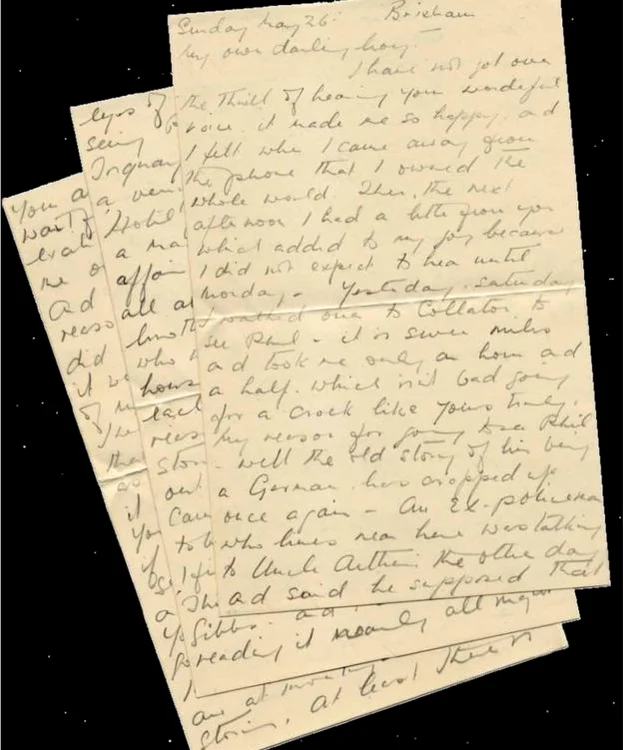 Sunday May 26. Brixham
My own darling boy.
I have not got over
the thrill of hearing your wonderful
voice. it made me so happy. ad
I felt when I came away from
the phone that I owned the
whole world. Then, the next
afternoon I had a letter from you
which added to my joy because
I did not expect to hear until
Monday. Yesterday. Saturday
I walked over to Collaton. to
see Phil - it is seven miles
ad took me only an hour ad
a half. which isn't bad going
for a crock like yours truly.
My reason for going to see Phil
well the old story of his being
a German. has cropped up
once again - An Ex-policeman
who lives near here was talking
to Uncle Arthur the other day
ad said he supposed that
eyes of
seing
Torquay
a very
Hotel
a ma
affair
all a
who
hous
each
reas
stor
out.
came
to
I fe
The
Gibbs. ad
reading it nearly all
You a
want
me o
ad
reaso
did
it
of
the
as
it
Yo
if
are at
storm. at least there